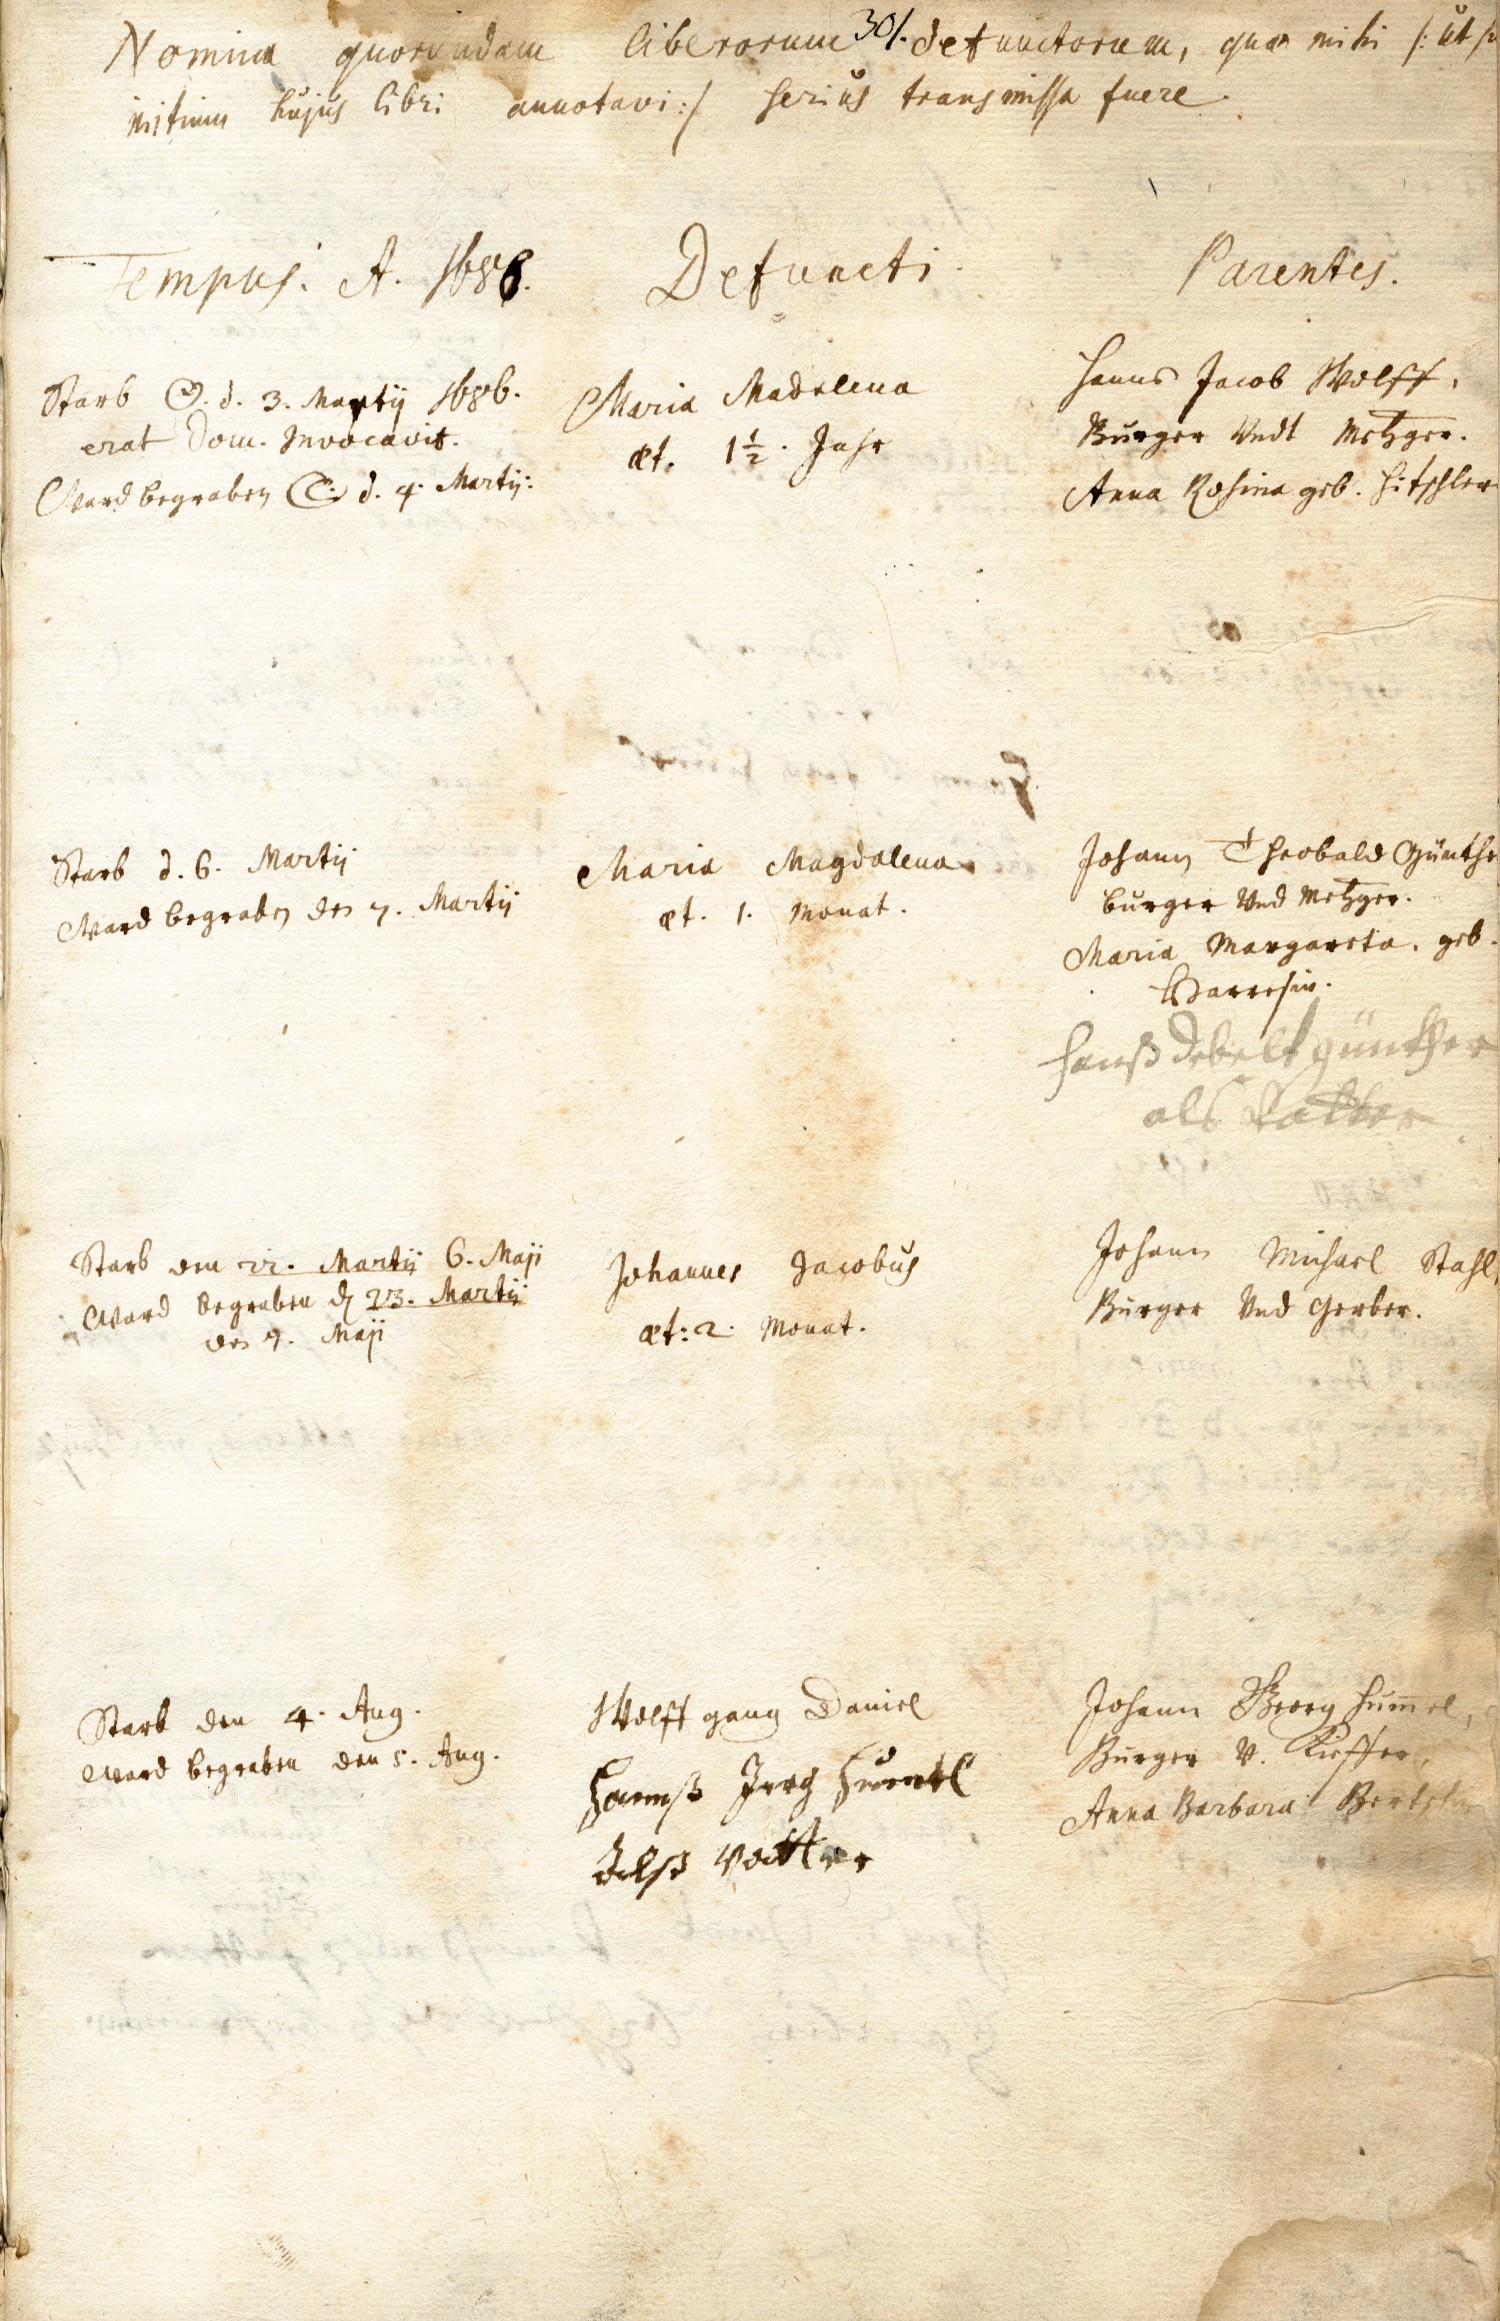 30/.
Nomina quorundam liberorum defunctorum, quae mihi /: ut
initium hujus libri annotavi :/ seriùs transmissa fuere.
Tempus. A. 1686.
Defuncti.
Parentes.
Starb ☉. d. 3. Martij 1686.
erat Dom. Invocavit.
Ward begraben ☾. d. 4. Martij.
Maria Madalena
æt. 1 1/2. Jahr
Hanns Jacob Wolff,
Burger Undt Metzger.
Anna Rosina geb. Hitschler
Starb d. 6. Martij
Ward begraben den 7. Martij
Maria Magdalena
æt. 1. Monat.
Johann Theobald Günther
burger Und Metzger.
Maria Margareta. geb.
Hanß Debelt günther
als Vatter
Starb den 22. Martij 6. Maji
Ward begraben d 23. Martij
den 7. Maji
Johannes Jacobus
æt: 2. Monat.
Johann Michael Stahl,
Burger Und Gerber.
Starb den 4. Aug.
Ward begraben den 5. Aug.
Wolffgang Daniel
Hannß Jerg Humel
Alß Vatter
Johann Georg Hum̄el,
Burger V. Kieffer,
Anna Barbara